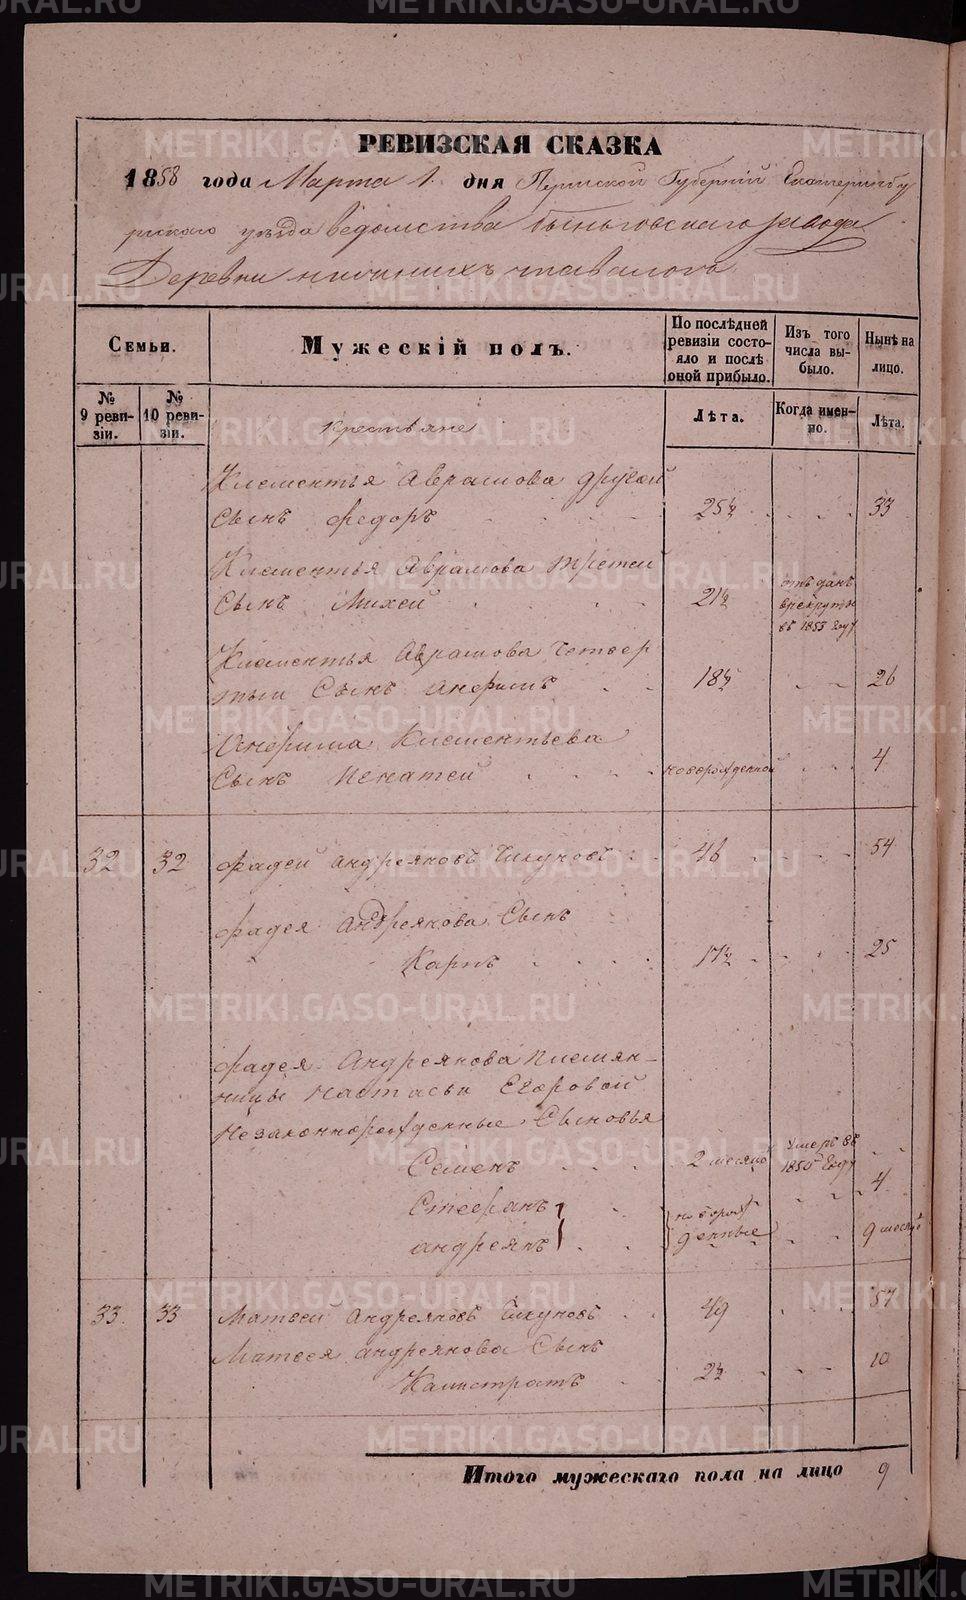 РЕВИЗСКАЯ СКАЗКА
1858 года Марта 1. дня Пермской Губерніи Екатеринбу
ргскаго уѣзда Ведомства Быньговскаго завода
Деревни нижнихъ
Семьи.
Мужескій полъ.
По послѣдней ревизіи состояло и послѣ оной прибыло.
Изъ того числа выбыло.
Нынѣ на лицо.
№ 9 ревизіи.
№ 10 ревизіи.
Лѣта.
Когда именно.
Лѣта.
Крестьяне
Клементья Аврамова другой
Сынъ Федоръ 25½ 33
Клементья Аврамова третей
Сынъ Михей 21½ отъданъ врекруты въ 1855 году
Клементья Аврамова Четвер
тый Сынъ Анфимъ 18½ 26
Анфима Клементьева
Сынъ Игнатей новорожденной 4
32 32 Фадей андреяновъ Чикуновъ 46 54
Фадея Андреянова Сынъ
Карпъ 17½ 25
Фадея Андреянова племян-
ницы Настасьи Егоровой
Незаконнорожденные Сыновья
Семенъ 2 месяца Умеръ въ 1850 году
Стефанъ 4
андреянъ новорожденные 9 месяцей
33. 33 Матвей Андреяновъ Чикуновъ 49 57
Матвея андреянова Сынъ
Калистратъ 2½ 10
Итого мужескаго пола на лицо 9
METRIKI.GASO-URAL.RU